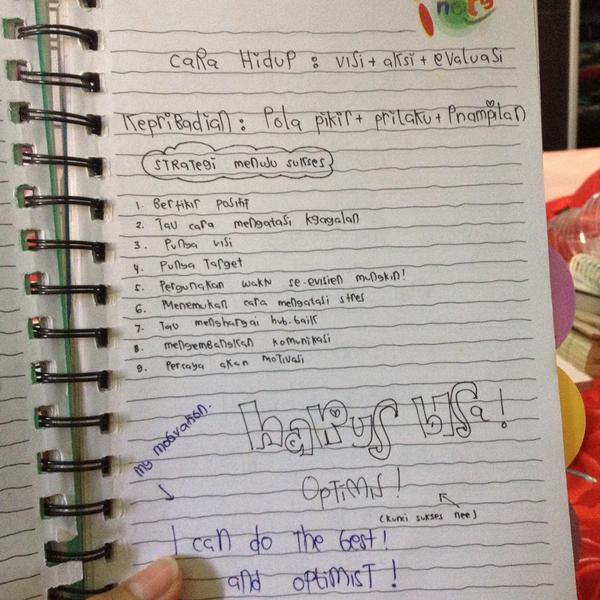 nots
CaRa Hidup : visi + aksi + evaluasi
Kepribadian : Pola pikir + prilaku + Pnampilan
STRATegi menuju sukses
1. Berfikir positif
2. Tau cara mengatasi kgagalan
3. Punya visi
4. Punya Target
5. Pergunakan waktu se-evisien mungkin!
6. Menemukan cara mengatasi stres
7. Tau menghargai hub.baik
8. mengembangkan komunikasi
9. Percaya akan MOTIVASI
my motivation.
haRus bisa!
OPTIMIS !
(kunci sukses nee)
I can do the best!
and optimisT !